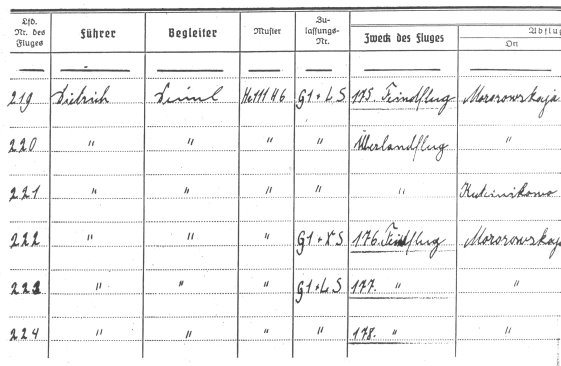 Lfd. Nr. des Fluges Führer Begleiter Muster Zu-lassungs-Nr. Zweck des Fluges Abflug Ort
219 Dietrich He 111 H6 G1+LS 175. Feindflug Morosowskaja
220 " " " " Überlandflug "
221 " " " " " Kuteinikowo
222 " " " G1+XS 176. Feindflug Morosowskaja
223 " " " G1+LS 177. " "
224 " " " " 178. " "